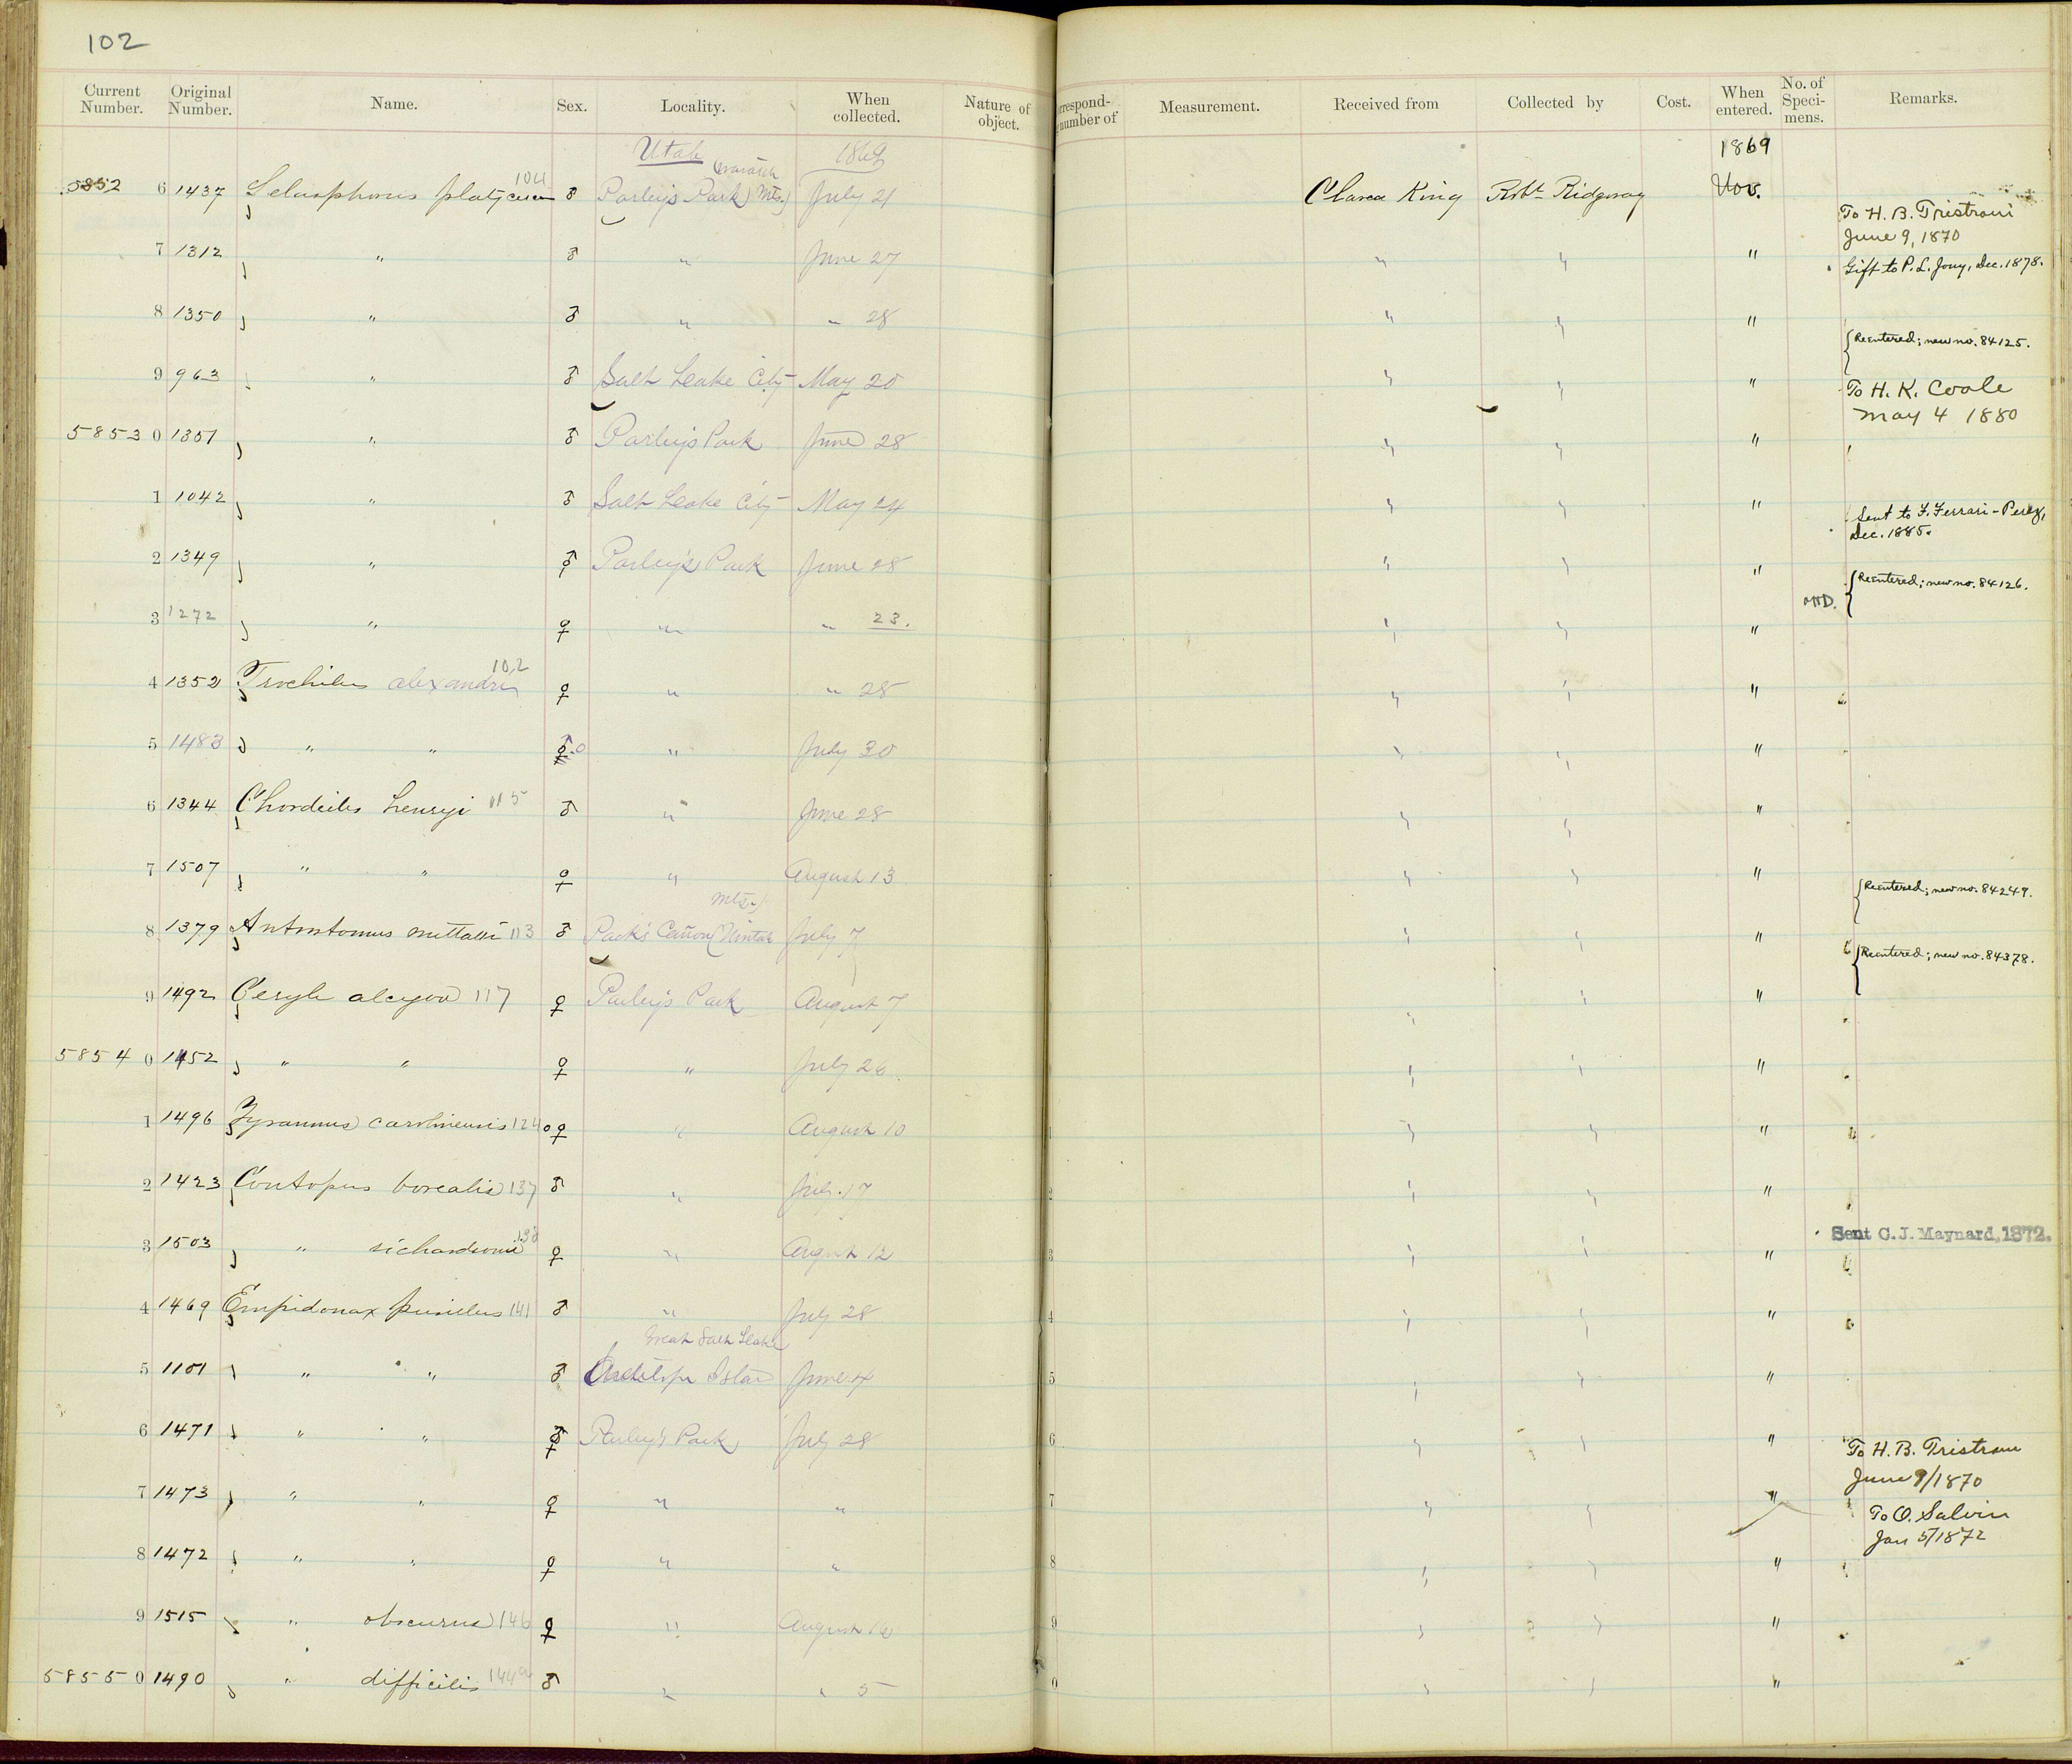 102
Current Number. Original Number. Name. Sex. Locality. When collected. Nature of object. Correspond- number of Measurement. Received from Collected by Cost. When entered. No. of Speci- mens. Remarks.
Utah 1869 1869
5852 6 1437 Selasphorus platycercus 101 ♂ Parley's Park (Wasatch Mts.) July 21 Clarence King Robt Ridgway Nov.
To H. B. Tristram
June 9, 1870
7 1312 " ♂ " June 27 " " " Gift to P. L. Jouy, Dec. 1878.
8 1350 " ♂ " " 28 " " "
{Reentered; new no. 84125.
9 963 " ♂ Salt Lake City May 20 " " " To H. K. Coale
May 4 1880
5853 0 1351 " ♂ Parley's Park June 28 " " "
1 1042 " ♂ Salt Lake City May 24 " " " Sent to F. Ferrari-Perez,
Dec. 1885.
2 1349 " ♂ Parley's Park June 28 " " "
{Reentered; new no. 84126.
3 1272 " ♀ " " 23. " " "
4 1352 Trochilus alexandri 102 ♀ " " 28 " " "
5 1483 " " ♀ " July 30 " " "
6 1344 Chordeiles henryi 115 ♂ " June 28 " " "
7 1507 " " ♀ " August 13 " " "
{Reentered; new no. 84249.
8 1379 Antrostomus nuttalli 113 ♂ Pack's Cañon (Uintah Mts.) July 7 " " "
{Reentered; new no. 84378.
9 1492 Ceryle alcyon 117 ♀ Parley's Park August 7 " " "
5854 0 1452 " " ♀ " July 26 " " "
1 1496 Tyrannus carolinensis 124 o♀ " August 10 " " "
2 1423 Contopus borealis 137 ♂ " July 17 " " "
3 1503 " richardsonii 138 ♀ " August 12 " " " Sent C. J. Maynard, 1872.
4 1469 Empidonax pusillus 141 ♂ " July 28 " " "
5 1101 " " ♂ Antelope Island Great Salt Lake June 4 " " "
6 1471 " " ♀ Parley's Park July 28 " " " To H. B. Tristram
June 9/1870
7 1473 " " ♀ " " " " " To O. Salvin
Jan 5/1872
8 1472 " " ♀ " " " " "
9 1515 " obscurus 146 ♀ " August 16 " " "
5855 0 1490 " difficilis 144a ♂ " " 5 " " "